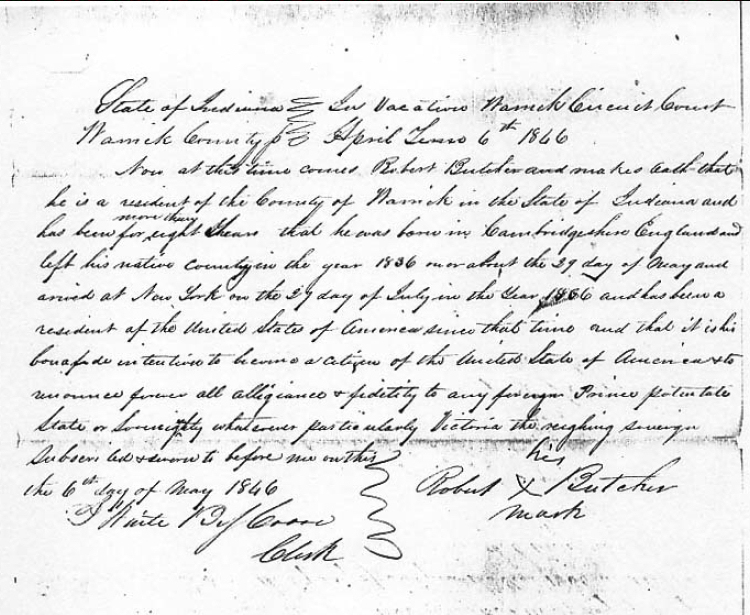 State of Indiana In Vacation Warrick Circuit Court
Warrick County April Term 6th 1846
Now at this time comes Robert Butcher and makes Oath that
he is a resident of the County of Warrick in the State of Indiana and
more than
has been for eight Years that he was born in Cambridgeshire England and
left his native country in the year 1836 on or about the 29 day of May and
arived at New York on the 29 day of July in the Year 1836 and has been a
resident of the United States of America since that time and that it is his
bonafide intention to become a citizen of the United State of America & to
renounce forever all allegiance & fidelity to any foreign Prince potentate
State or Sovereignty whatever particularly Victoria the reighing sovereign
Subscribed & sworn to before me on this
the 6th day of May 1846
his
Robert X Butcher
mark
Clerk